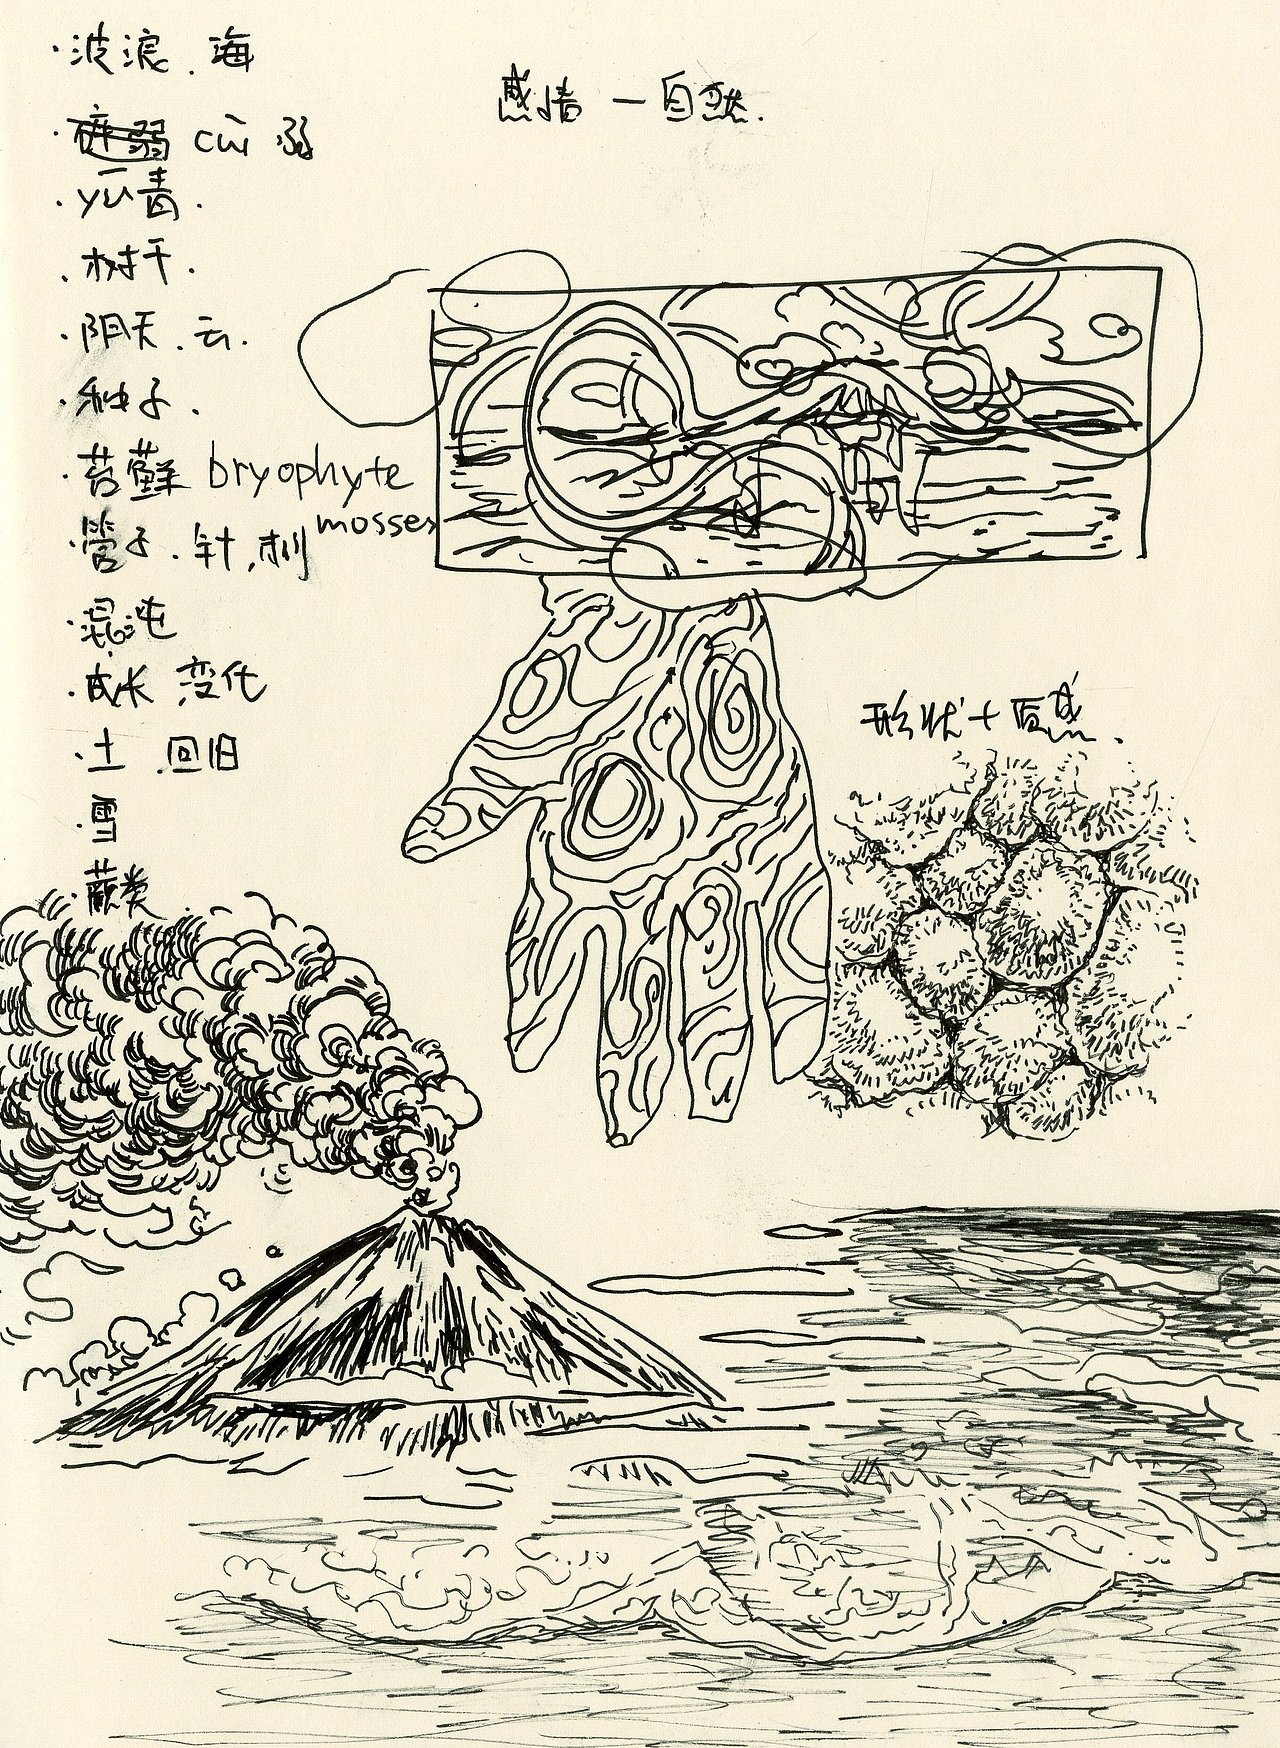 ·波浪.海
感情 — 自然.
·cuì 弱
·yū青.
·树干.
·阴天.云.
·种子.
·苔藓 bryophyte
mosses
·管子.针,刺
·混沌
·成长 变化
·土 .回旧
·雪
形状+质感.